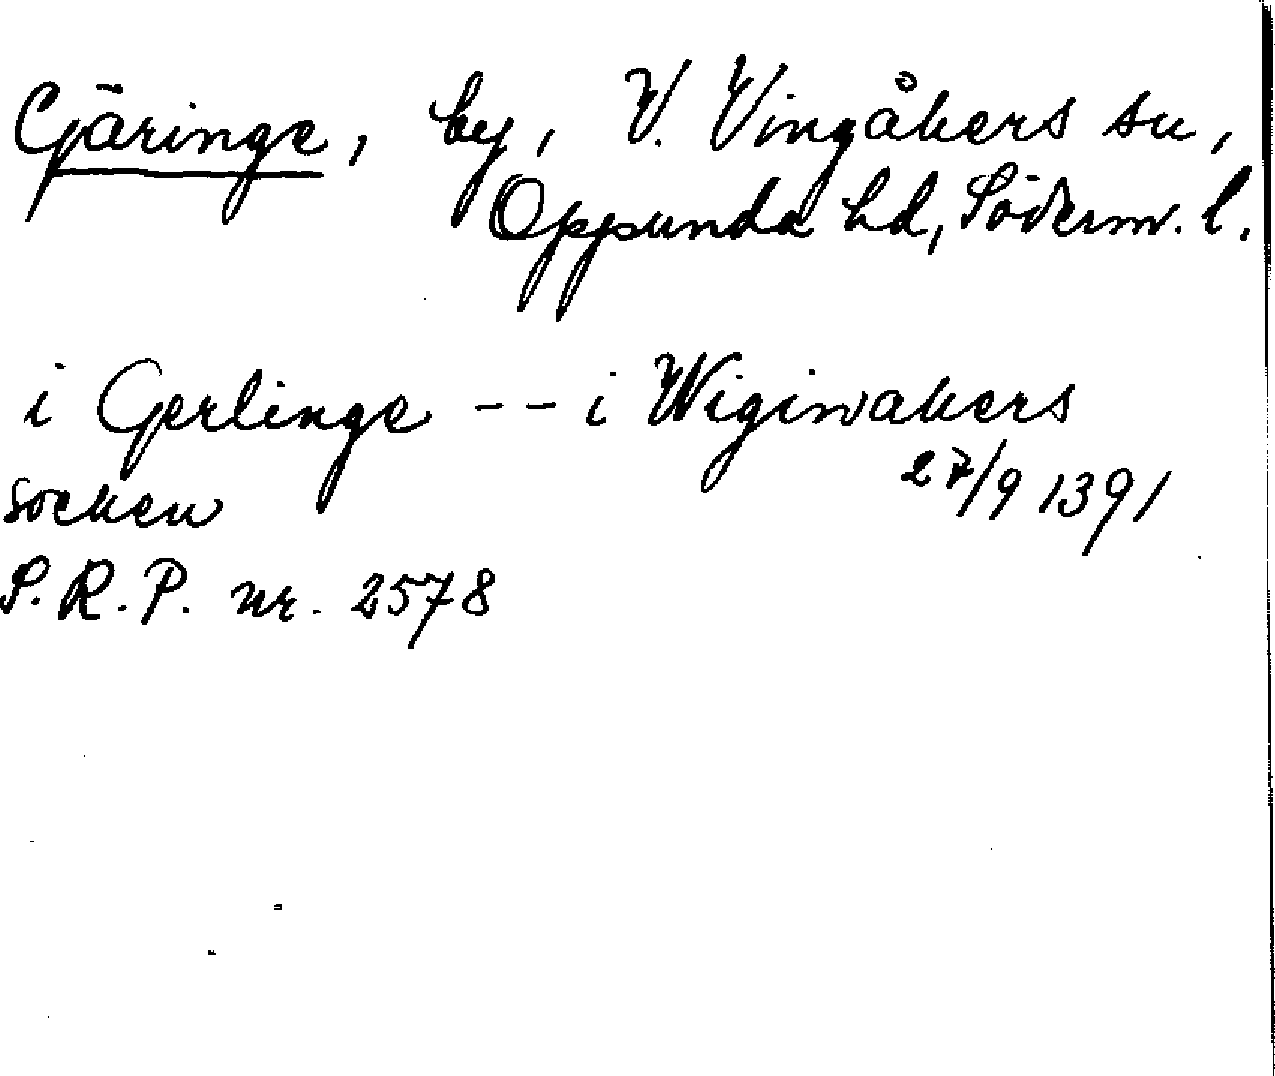 Gäringe, by, V. Vingåkers sn,
Oppunda hd, Söderm. l.
i Gerlinge -- i Wiginakers
27/9 1391
socken
S.R.P. nr. 2578